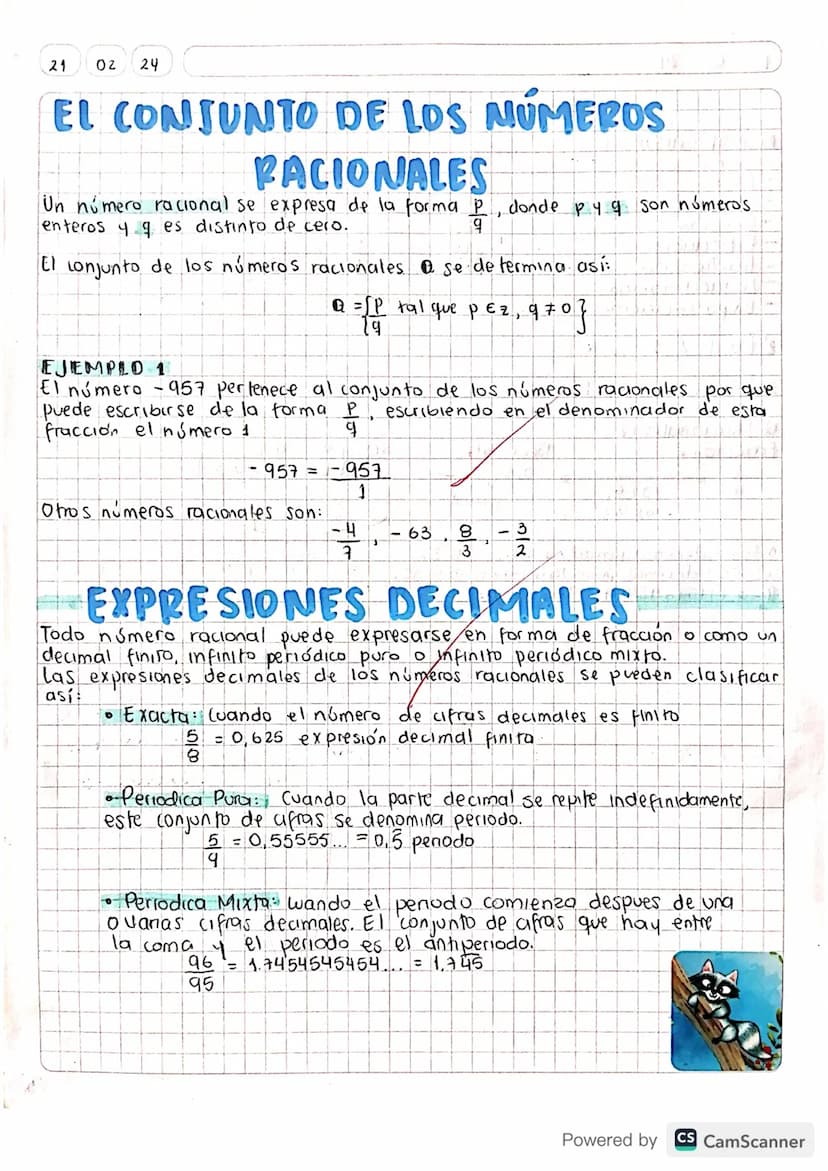 21 02 24
EL CONJUNTO DE LOS NÚMEROS
RACIONALES
Un número racional se expresa de la forma p/q, donde p y q son números
enteros y q es distinto de cero.
El conjunto de los números racionales Q se determina así:
Q = {p/q tal que p ∈ z, q ≠ 0}
EJEMPLO 1
El número -957 pertenece al conjunto de los números racionales por que
puede escribirse de la forma p/q, escribiendo en el denominador de esta
fracción el número 1
-957 = -957/1
Otros números racionales son:
-4/7, -63, 8/3, -3/2
EXPRESIONES DECIMALES
Todo número racional puede expresarse en forma de fracción o como un
decimal finito, infinito periódico puro o infinito periódico mixto.
Las expresiones decimales de los números racionales se pueden clasificar
así:
• Exacta: Cuando el número de cifras decimales es finito
5/8 = 0,625 expresión decimal finita
• Periodica Pura: Cuando la parte decimal se repite indefinidamente,
este conjunto de cifras se denomina periodo.
5/9 = 0,55555... = 0,5̄ periodo
• Periodica Mixta: cuando el periodo comienza despues de una
o varias cifras decimales. El conjunto de cifras que hay entre
la coma y el periodo es el antiperiodo.
96/95 = 1.7454545454... = 1,74̄5̄
Powered by CS CamScanner